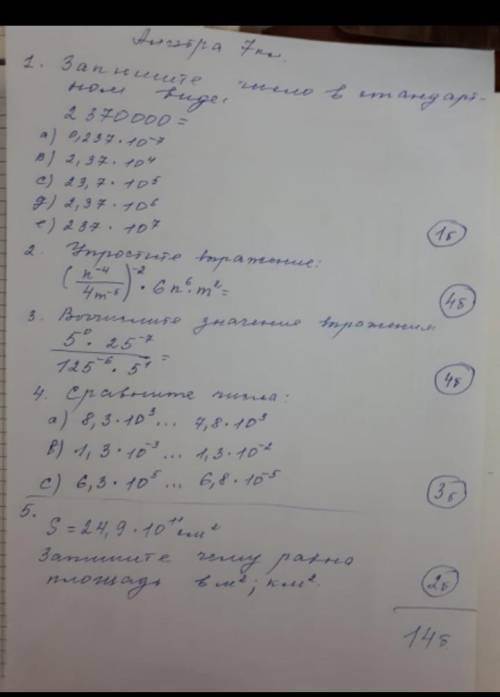 Алгебра 7 кл.
1. Запишите число в стандарт-
ном виде.
2370000 =
а) 0,237 · 10⁻⁷
в) 2,37 · 10⁴
с) 23,7 · 10⁵
д) 2,37 · 10⁶
е) 237 · 10⁷
1б
2. Упростите выражение:
(n⁻⁴ / 4m⁻⁵)⁻² · 6n⁶ · m² =
4б
3. Вычислите значение выражения
5⁰ · 25⁻⁷ / 125⁻⁶ · 5¹ =
4б
4. Сравните числа:
а) 8,3 · 10³ ... 7,8 · 10³
в) 1,3 · 10⁻³ ... 1,3 · 10⁻²
с) 6,3 · 10⁵ ... 6,8 · 10⁻⁵
3б
5.
S = 24,9 · 10¹¹ см²
Запишите чему равна
площадь в м²; км².
2б
14б